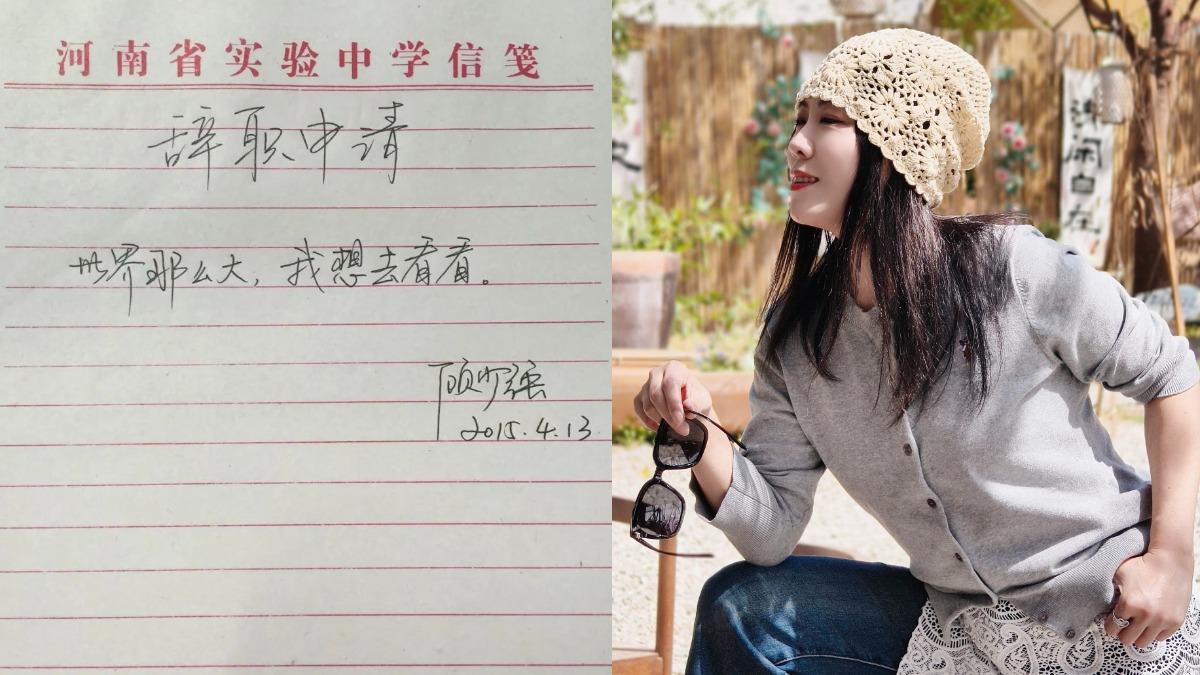 河南省实验中学信笺
辞职申请
世界那么大，我想去看看。
顾少强
2015.4.13
清闲自在